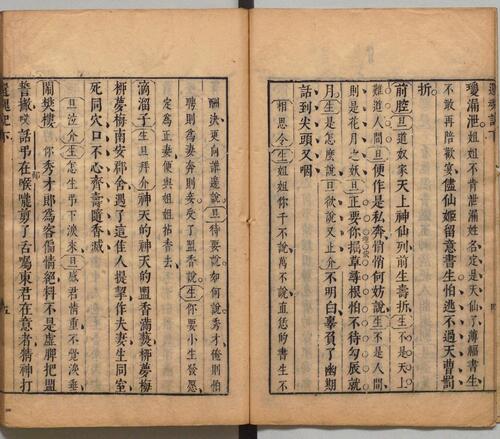 還魂記下
瓊漏泄姐姐不肯泄漏姓名定是天仙了薄福書生
不敢再陪歡宴儘仙姬留意書生怕逃不過天曹罰
折
前腔旦道奴家天上神仙列前生壽折生不是天上
難道人間旦便作是私奔悄悄何妨說生不是人間
則是花月之妖旦正要你掘草尋根怕不待勾辰就
月生是怎麽說旦欲說又止介不明白辜負了幽期
話到尖頭又咽
相思令生姐姐你千不說萬不說直恁的書生不
酬決更向誰邊說旦待要說如何說秀才俺則怕
聘則爲妻奔則妾受了盟香說生你要小生發愿
定爲正妻便與姐姐拈香去
滴溜子生旦拜介神天的神天的盟香滿爇栁夢梅
栁夢梅南安郡舍遇了這佳人提挈作夫妻生同室
死同穴口不心齊壽隨香滅
旦泣介生怎生弔下淚來旦感君情重不覺淚垂
鬧樊樓 你秀才郎爲客偏情絕料不是虛脾把盟
誓撇 話弔在喉嚨剪了舌囑東君在意者精神打
還魂記下 五